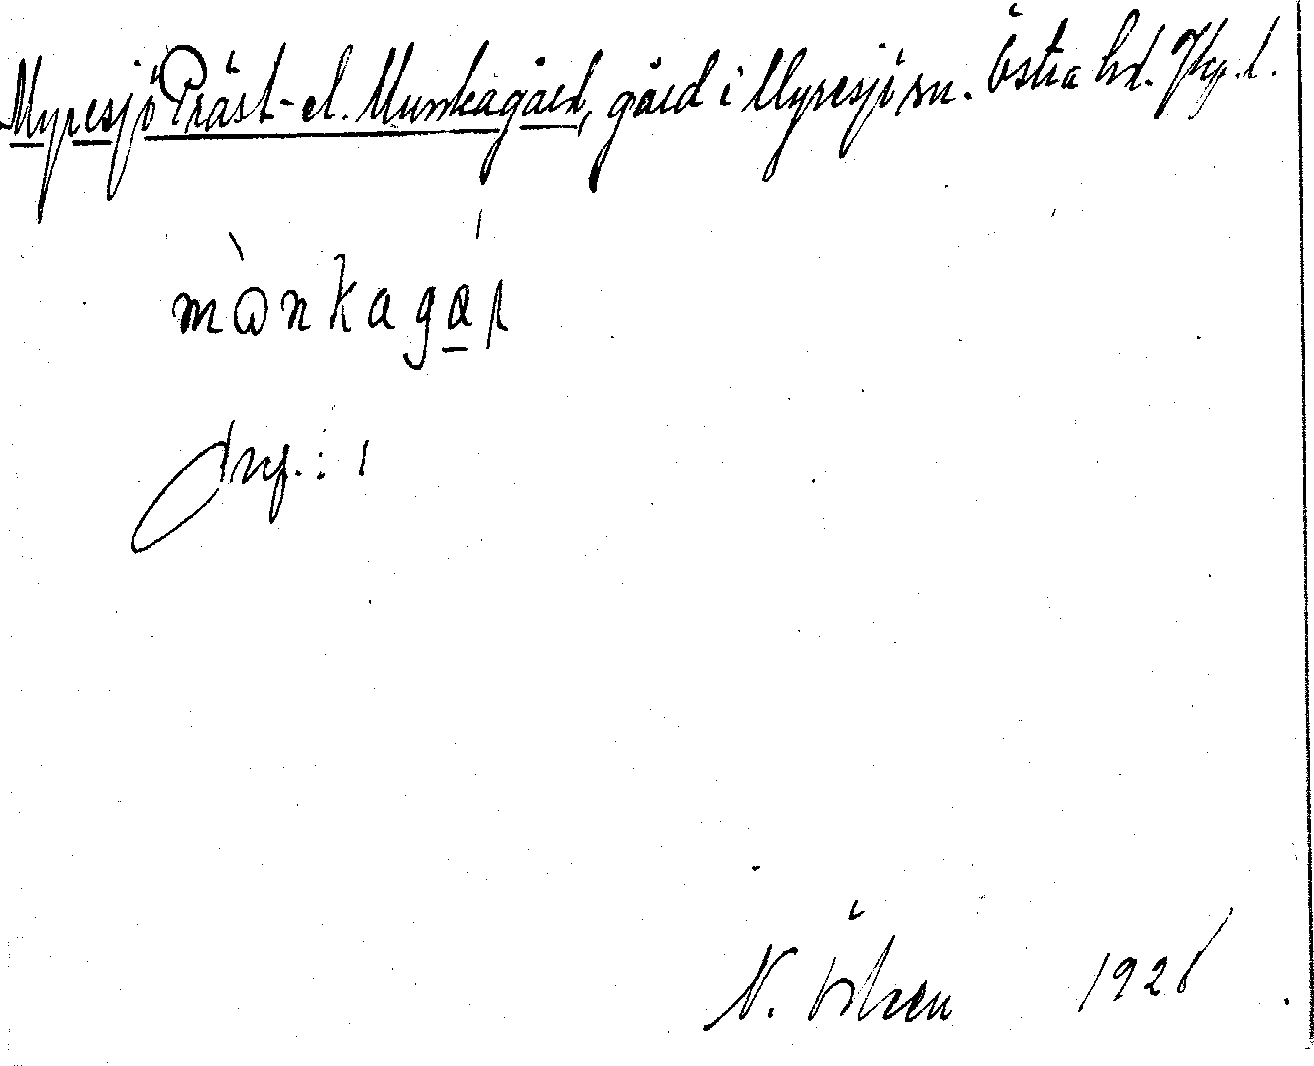 Myresjö Präst- el. Munkagård, gård i Myresjö sn. Östra hd. Jkp. l.
mùnkagá̱r
prep.: i
N. 1926